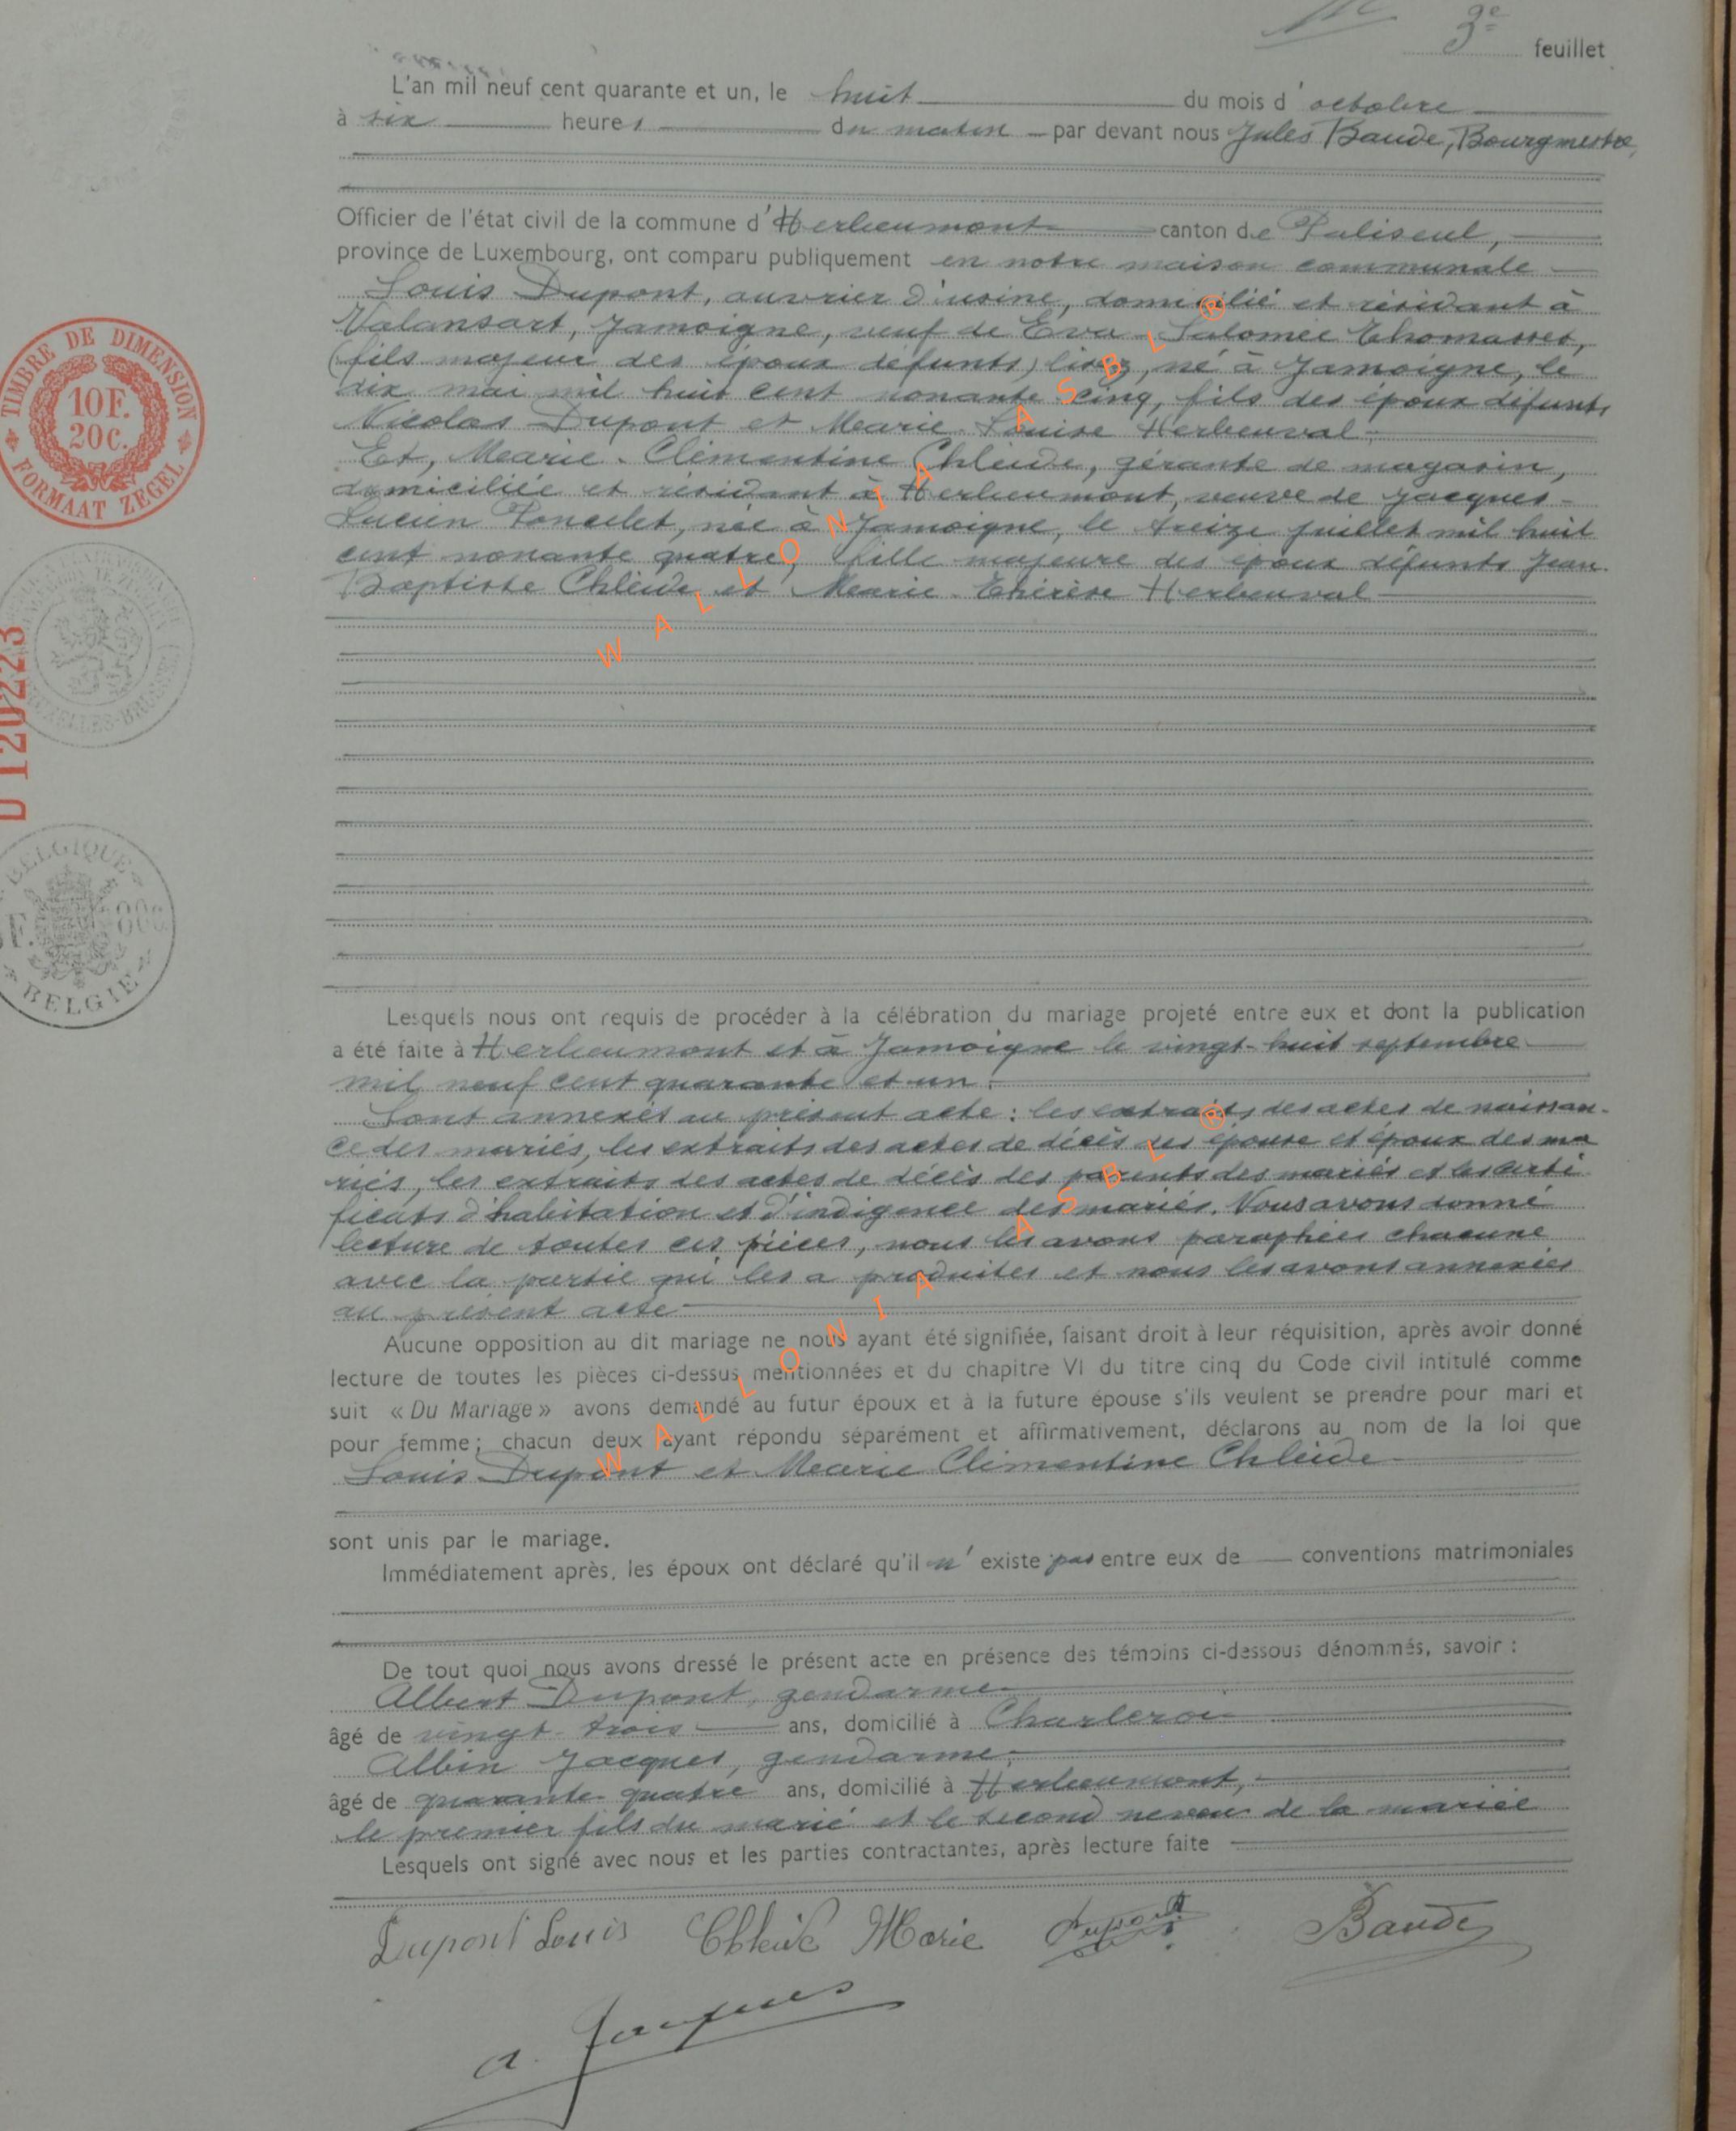 3e feuillet
L'an mil neuf cent quarante et un, le huit du mois d'octobre
à six heures du matin par devant nous Jules Baude, Bourgmestre,
Officier de l'état civil de la commune d'Herbeumont canton de Paliseul,
province de Luxembourg, ont comparu publiquement en notre maison communale
Louis Dupont, ouvrier d'usine, domicilié et résidant à
Valansart, Jamoigne, veuf de Eva Salomée Thomasset,
(fils majeur des époux défunts) lisez, né à Jamoigne, le
dix mai mil huit cent nonante cinq, fils des époux défunts
Nicolas Dupont et Marie-Louise Herbeuval;
Et, Marie-Clémentine Chleide, gérante de magasin,
domiciliée et résidant à Herbeumont, veuve de Jacques-
Lucien Poncelet, née à Jamoigne, le treize juillet mil huit
cent nonante quatre, fille majeure des époux défunts Jean-
Baptiste Chleide et Marie-Thérèse Herbeuval
Lesquels nous ont requis de procéder à la célébration du mariage projeté entre eux et dont la publication
a été faite à Herbeumont et à Jamoigne le vingt-huit septembre
mil neuf cent quarante et un.
Sont annexés au présent acte: les extraits des actes de naissan-
ce des mariés, les extraits des actes de décès des épouse et époux des ma
riés, les extraits des actes de décès des parents des mariés et les certi
ficats d'habitation et d'indigence des mariés. Nous avons donné
lecture de toutes ces pièces, nous les avons paraphées chacune
avec la partie qui les a produites et nous les avons annexées
au présent acte
Aucune opposition au dit mariage ne nous ayant été signifiée, faisant droit à leur réquisition, après avoir donné
lecture de toutes les pièces ci-dessus mentionnées et du chapitre VI du titre cinq du Code civil intitulé comme
suit « Du Mariage » avons demandé au futur époux et à la future épouse s'ils veulent se prendre pour mari et
pour femme; chacun deux ayant répondu séparément et affirmativement, déclarons au nom de la loi que
Louis Dupont et Marie Clémentine Chleide
sont unis par le mariage.
Immédiatement après, les époux ont déclaré qu'il n'existe pas entre eux de conventions matrimoniales
De tout quoi nous avons dressé le présent acte en présence des témoins ci-dessous dénommés, savoir :
Albert Dupont, gendarme
âgé de vingt-trois ans, domicilié à Charleroi
Albin Jacques, gendarme
âgé de quarante-quatre ans, domicilié à Herbeumont,
le premier fils du marié et le second neveu de la mariée
Lesquels ont signé avec nous et les parties contractantes, après lecture faite
Dupont Louis Chleide Marie Dupont Baude
A. Jacques
TIMBRE DE DIMENSION
10F.
20C.
FORMAAT ZEGEL
120223
BELGIQUE
F. 80c
BELGIE
WALLONIA ASBL ®
WALLONIA ASBL ®